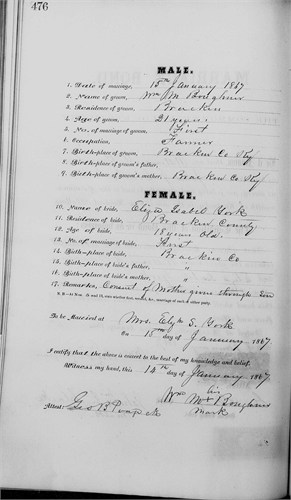 476
MALE.
1. Date of marriage, 15th January 1867
2. Name of groom, Wm M Boughner
3. Residence of groom, Bracken
4. Age of groom, 21 years
5. No. of marriage of groom, First
6. Occupation, Farmer
7. Birth-place of groom, Bracken Co Ky
8. Birth-place of groom's father,
9. Birth-place of groom's mother, Bracken Co Ky
FEMALE.
10. Name of bride, Eliza Isabel York
11. Residence of bride, Bracken County
12. Age of bride, 18 years old.
13. No. of marriage of bride, First
14. Birth-place of bride, Bracken Co
15. Birth-place of bride's father, "
16. Birth-place of bride's mother, "
17. Remarks, Consent of Mother given through Son
To be Married at Mrs. Eliz S. York
On 15th day of January 1867.
I certify that the above is correct to the best of my knowledge and belief.
Witness my hand, this 14th day of January 1867
Wm M Boughner
Mark
Attest: Geo B